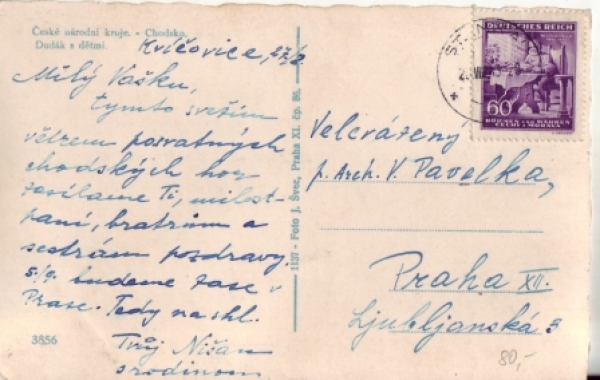 České národní kroje. - Chodsko.
Dudák s dětmi.
Kvíčovice, 27/8
Milý Vašku,
tymto svežím
větrem posvatných
chodských hor
zasílame Ti, milost-
paní, bratrům a
sestrám pozdravy.
5./9. budeme zase v
Praze. Tedy na shl.
Tvůj Nišan
s rodinom
3856
1137 - Foto J. Švec, Praha XI. čp.
DEUTSCHES REICH
60
BÖHMEN UND MÄHREN
ČECHY A MORAVA
Velevážený
p. Arch. V. Pavelka,
Praha XII.
Ljubljanská 3
80,-